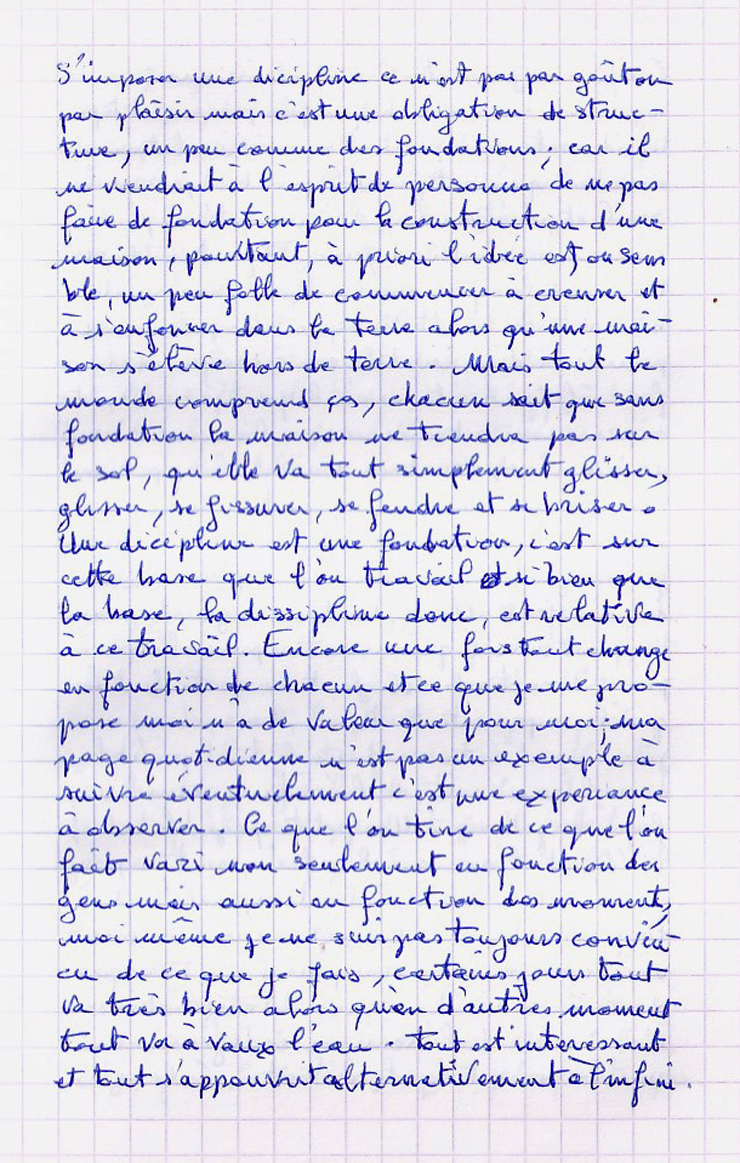 S'imposer une dicipline ce n'est pas par goût ou
par plaisir mais c'est une obligation de struc-
ture, un peu comme des fondations ; car il
ne viendrait à l'esprit de personne de ne pas
faire de fondation pour la construction d'une
maison, pourtant, à priori l'idée est ou sem
ble, un peu folle de commencer à creuser et
à s'enfoncer dans la terre alors qu'une mai-
son s'élève hors de terre. Mais tout le
monde comprend ça, chacun sait que sans
fondation la maison ne tiendra pas sur
le sol, qu'elle va tout simplement glisser,
glisser, se fissurer, se fendre et se briser.
Une dicipline est une fondation, c'est sur
cette base que l'on travail et si bien que
la base, la dissipline donc, est relative
à ce travail. Encore une fois tout change
en fonction de chacun et ce que je me pro-
pose moi n'a de valeur que pour moi ; ma
page quotidienne n'est pas un exemple à
suivre éventuelement c'est une experiance
à observer. Ce que l'on tire de ce que l'on
fait vari non seulement en fonction des
gens mais aussi en fonction des moment,
moi même je ne suis pas toujours convain
cu de ce que je fais, certains jours tout
va très bien alors qu'en d'autres moment
tout va à vaux l'eau. tout est interessant
et tout s'appauvrit alternativement à l'infini.